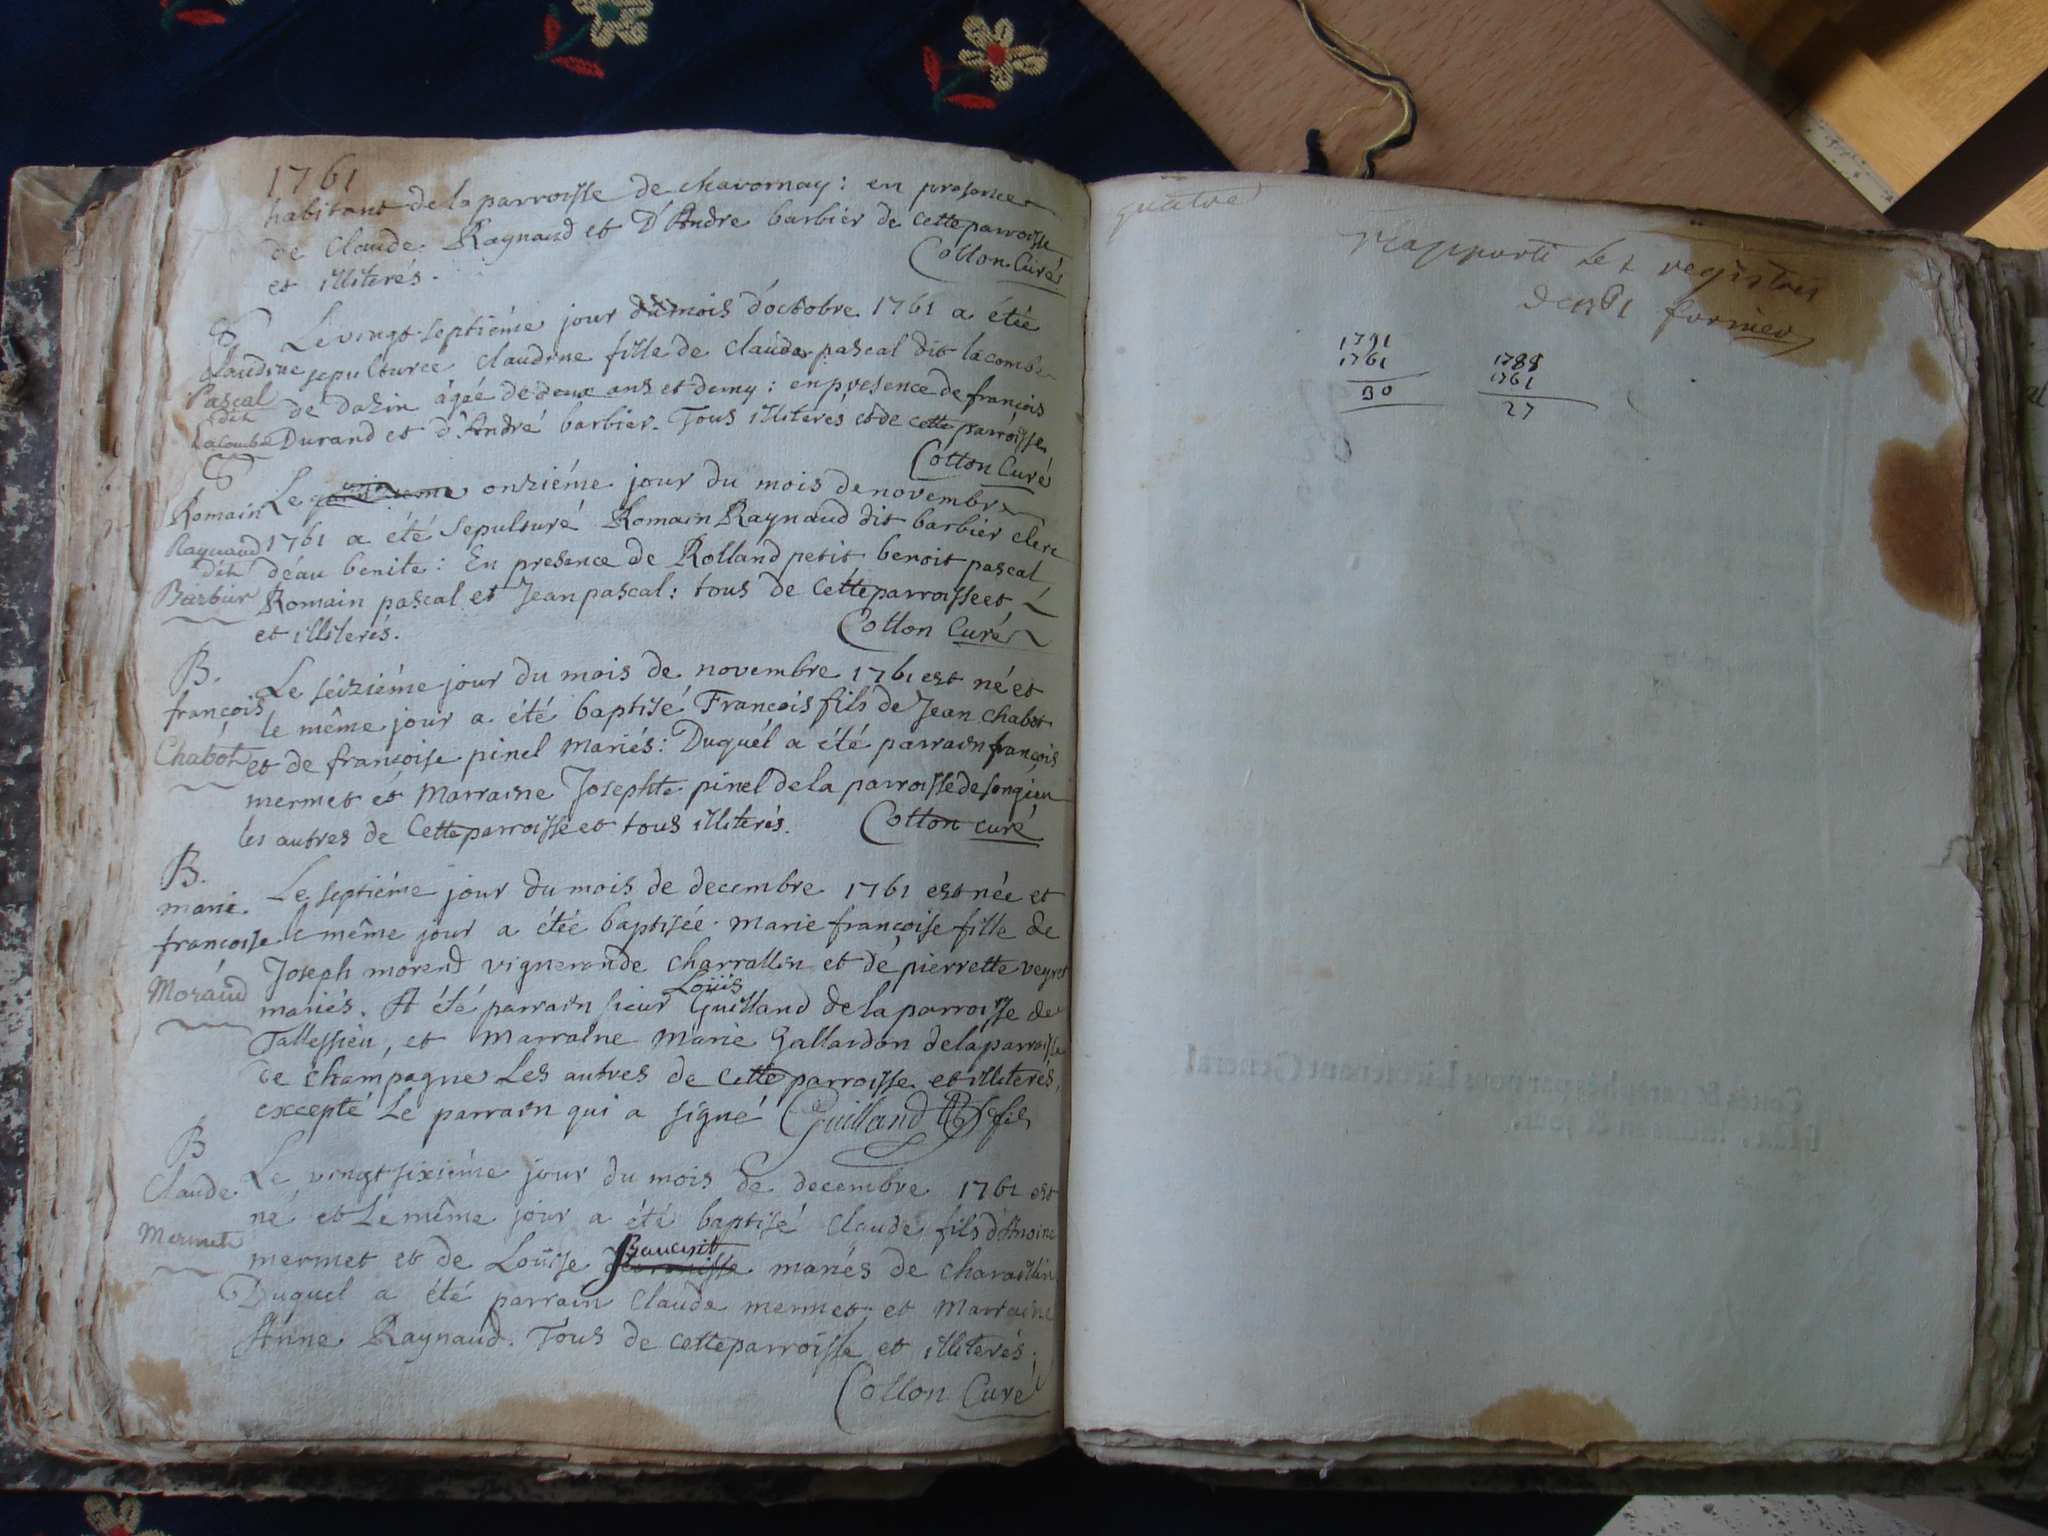 1761
habitant de la parroisse de chavornay: en presence
de Claude Raynaud et D'Andre barbier de cette parroisse
et illiterés. Cotton Curé
S
Claudine
Pascal
dit
Lacombe
Le vingt-septiéme jour du mois d'octobre 1761 a étée
sepulturée Claudine fille de Claude pascal dit lacombe
de dazin ágée de deux ans et demy: en presence de françois
Durand et d'André barbier. Tous illiterés et de cette parroisse
Cotton Curé
S
Romain
Raynaud
dit
Barbier
Le onziéme jour du mois de novembre
1761 a été sepulturé Romain Raynaud dit barbier clerc
d'éau benite: En presence de Rolland petit benoit pascal
Romain pascal et Jean pascal: tous de cette parroisse et
et illiterés. Cotton Curé
B.
françois
Chabot
Le séiziéme jour du mois de novembre 1761 est né et
le même jour a été baptisé François fils de Jean Chabot
et de françoise pinel mariés: Duquél a été parrain françois
mermet et Marraine Josephte pinel de la parroisse de songieu
les autres de Cette parroisse et tous illiterés. Cotton curé
B.
marie
françoise
Moráud
Le septiéme jour du mois de decembre 1761 est née et
le même jour a étée baptisée marie françoise fille de
Joseph morend vigneron de charrallin et de pierrette veyret
mariés. A été parrain sieur Loüis Guilland de la parroisse de
Tallessieu, et Marraine Marie Gallardon de la parroisse
de champagne Les autres de cette parroisse et illiterés,
excepté Le parrain qui a signé Guilland
B
Claude
Mermet
Le vingt sixiéme jour du mois de decembre 1761 est
né et Le même jour a été baptisé Claude fils d'Antoine
mermet et de Loüise mariés de charaillin
Duquel a été parrain Claude mermet et Marraine
Anne Raynaud. Tous de cette parroisse et illiterés.
Cotton Curé
quatre
rapporté les registres
de 1761 former
1791
1761
30
1788
1761
27
Cottés & paraphés par nous Lieutenant General